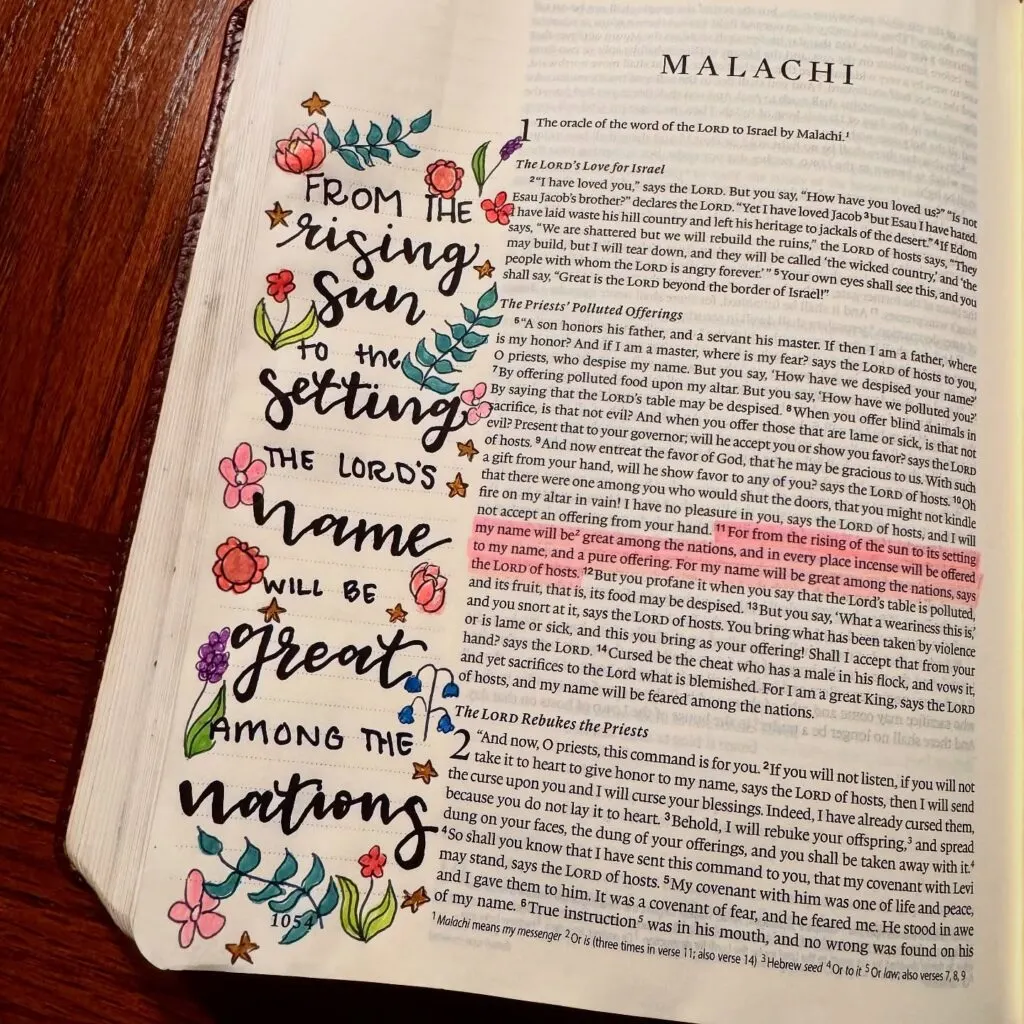 FROM THE
rising
sun
to the
setting
THE LORD'S
name
WILL BE
great
AMONG THE
nations
1054
MALACHI
1 The oracle of the word of the LORD to Israel by Malachi.¹
The LORD's Love for Israel
²“I have loved you,” says the LORD. But you say, “How have you loved us?” “Is not
Esau Jacob's brother?” declares the LORD. “Yet I have loved Jacob ³but Esau I have hated.
I have laid waste his hill country and left his heritage to jackals of the desert.” ⁴If Edom
says, “We are shattered but we will rebuild the ruins,” the LORD of hosts says, “They
may build, but I will tear down, and they will be called ‘the wicked country,’ and ‘the
people with whom the LORD is angry forever.’” ⁵Your own eyes shall see this, and you
shall say, “Great is the LORD beyond the border of Israel!”
The Priests' Polluted Offerings
⁶“A son honors his father, and a servant his master. If then I am a father, where
is my honor? And if I am a master, where is my fear? says the LORD of hosts to you,
O priests, who despise my name. But you say, ‘How have we despised your name?’
⁷By offering polluted food upon my altar. But you say, ‘How have we polluted you?’
By saying that the LORD's table may be despised. ⁸When you offer blind animals in
sacrifice, is that not evil? And when you offer those that are lame or sick, is that not
evil? Present that to your governor; will he accept you or show you favor? says the LORD
of hosts. ⁹And now entreat the favor of God, that he may be gracious to us. With such
a gift from your hand, will he show favor to any of you? says the LORD of hosts. ¹⁰Oh
that there were one among you who would shut the doors, that you might not kindle
fire on my altar in vain! I have no pleasure in you, says the LORD of hosts, and I will
not accept an offering from your hand. ¹¹For from the rising of the sun to its setting
my name will be² great among the nations, and in every place incense will be offered
to my name, and a pure offering. For my name will be great among the nations, says
the LORD of hosts. ¹²But you profane it when you say that the Lord's table is polluted,
and its fruit, that is, its food may be despised. ¹³But you say, ‘What a weariness this is,’
and you snort at it, says the LORD of hosts. You bring what has been taken by violence
or is lame or sick, and this you bring as your offering! Shall I accept that from your
hand? says the LORD. ¹⁴Cursed be the cheat who has a male in his flock, and vows it,
and yet sacrifices to the Lord what is blemished. For I am a great King, says the LORD
of hosts, and my name will be feared among the nations.
The LORD Rebukes the Priests
2 “And now, O priests, this command is for you. ²If you will not listen, if you will not
take it to heart to give honor to my name, says the LORD of hosts, then I will send
the curse upon you and I will curse your blessings. Indeed, I have already cursed them,
because you do not lay it to heart. ³Behold, I will rebuke your offspring,³ and spread
dung on your faces, the dung of your offerings, and you shall be taken away with it.⁴
⁴So shall you know that I have sent this command to you, that my covenant with Levi
may stand, says the LORD of hosts. ⁵My covenant with him was one of life and peace,
and I gave them to him. It was a covenant of fear, and he feared me. He stood in awe
of my name. ⁶True instruction⁵ was in his mouth, and no wrong was found on his
¹ Malachi means my messenger ² Or is (three times in verse 11; also verse 14) ³ Hebrew seed ⁴ Or to it ⁵ Or law; also verses 7, 8, 9